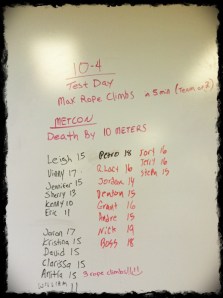 10-4
Test Day
Max Rope Climbs
METCON
Death By 10 METERS
Leigh 15
Vinny 17
Jennifer 15
Sherry 13
Kenny 10
Eric 11
Jason 17
Kristina 15
David 15
Clarissa 15
Anitra 15 3 rope climbs!!!!
William 11
Pedro 18
B. Lacy 16
Jordan 14
Brandon 15
Grant 16
Andre 15
Nick 19
Boss 18
Kori 16
16
15